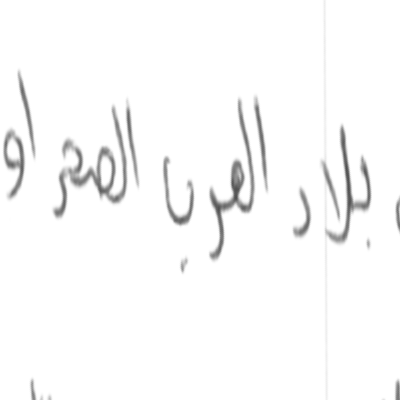 بلاد العرب الصحراو